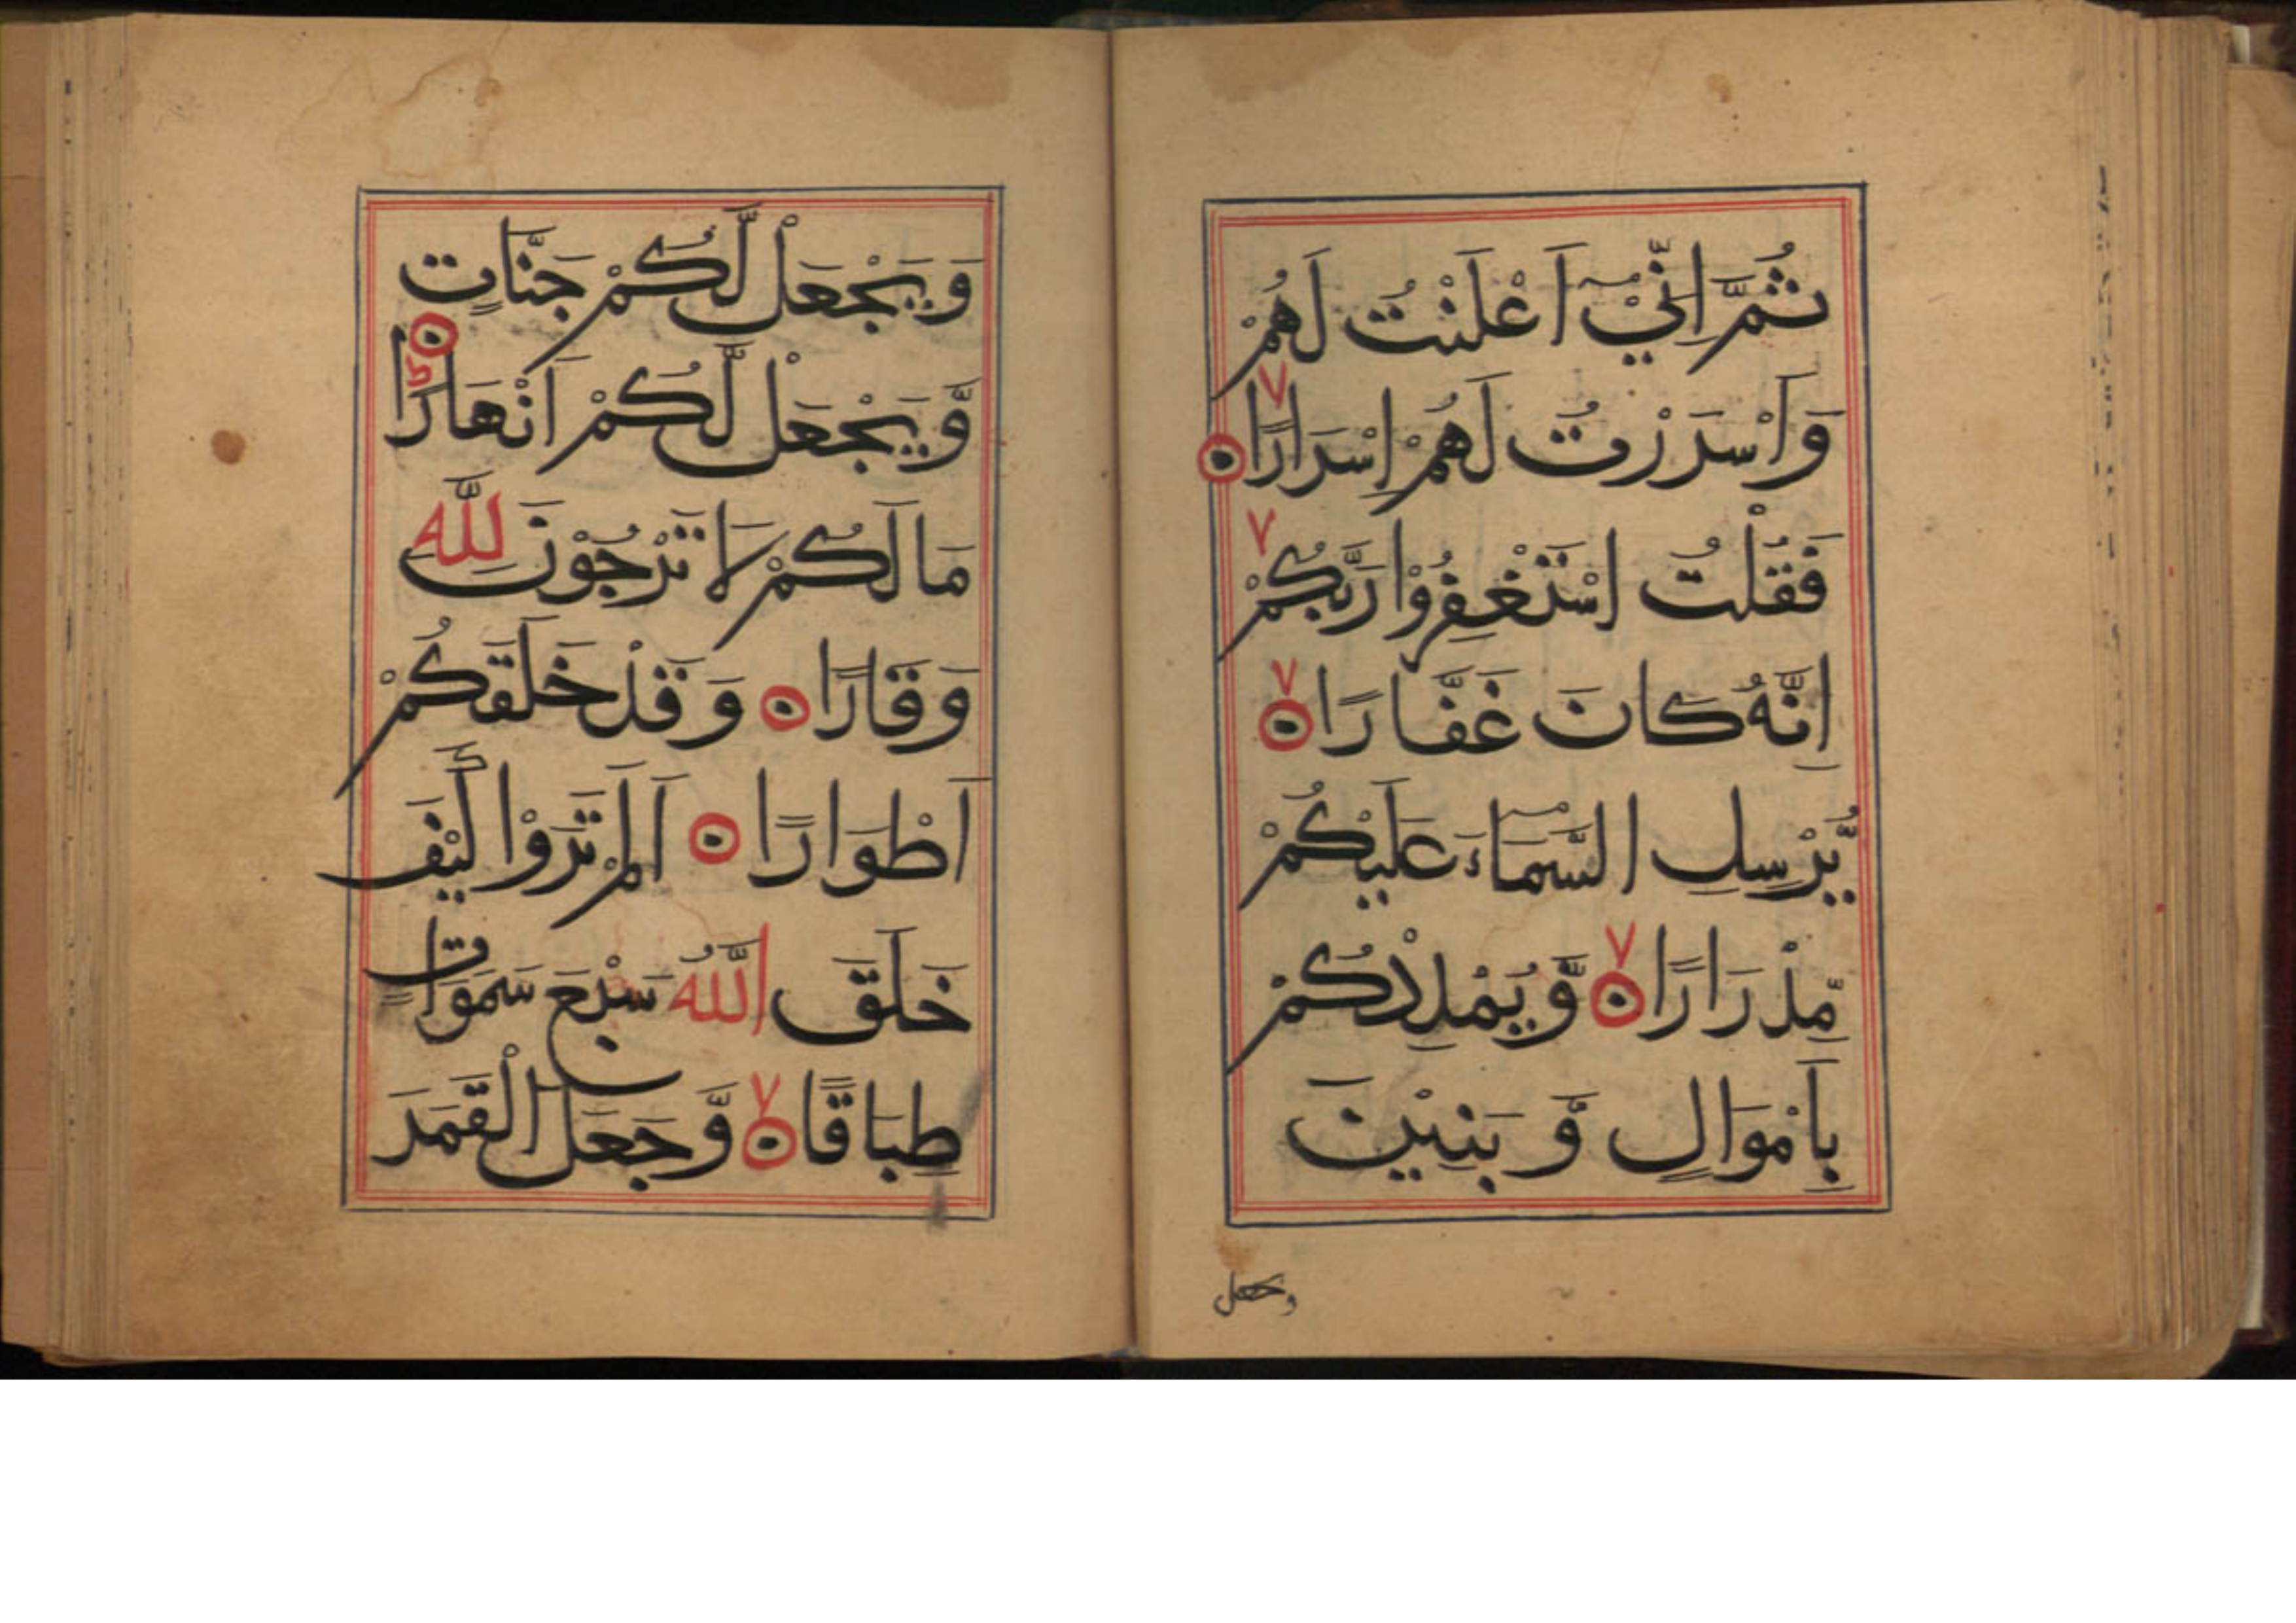 ثُمَّ اِنِّيْٓ اَعْلَنْتُ لَهُمْ
وَاَسْرَرْتُ لَهُمْ اِسْرَارًا ۙ
فَقُلْتُ اسْتَغْفِرُوْا رَبَّكُمْ ۙ
اِنَّهُ كَانَ غَفَّارًا ۙ
يُّرْسِلِ السَّمَآءَ عَلَيْكُمْ
مِّدْرَارًا ۙ وَّيُمْدِدْكُمْ
بِاَمْوَالٍ وَّ بَنِيْنَ
ويجعل
وَيَجْعَلْ لَّكُمْ جَنَّاتٍ
وَّيَجْعَلْ لَّكُمْ اَنْهَارًا ؕ
مَا لَكُمْ لَا تَرْجُوْنَ لِلّٰهِ
وَقَارًا ۝ وَقَدْ خَلَقَكُمْ
اَطْوَارًا ۝ اَلَمْ تَرَوْا كَيْفَ
خَلَقَ اللّٰهُ سَبْعَ سَمَوَاتٍ
طِبَاقًا ۙ وَّجَعَلَ الْقَمَرَ